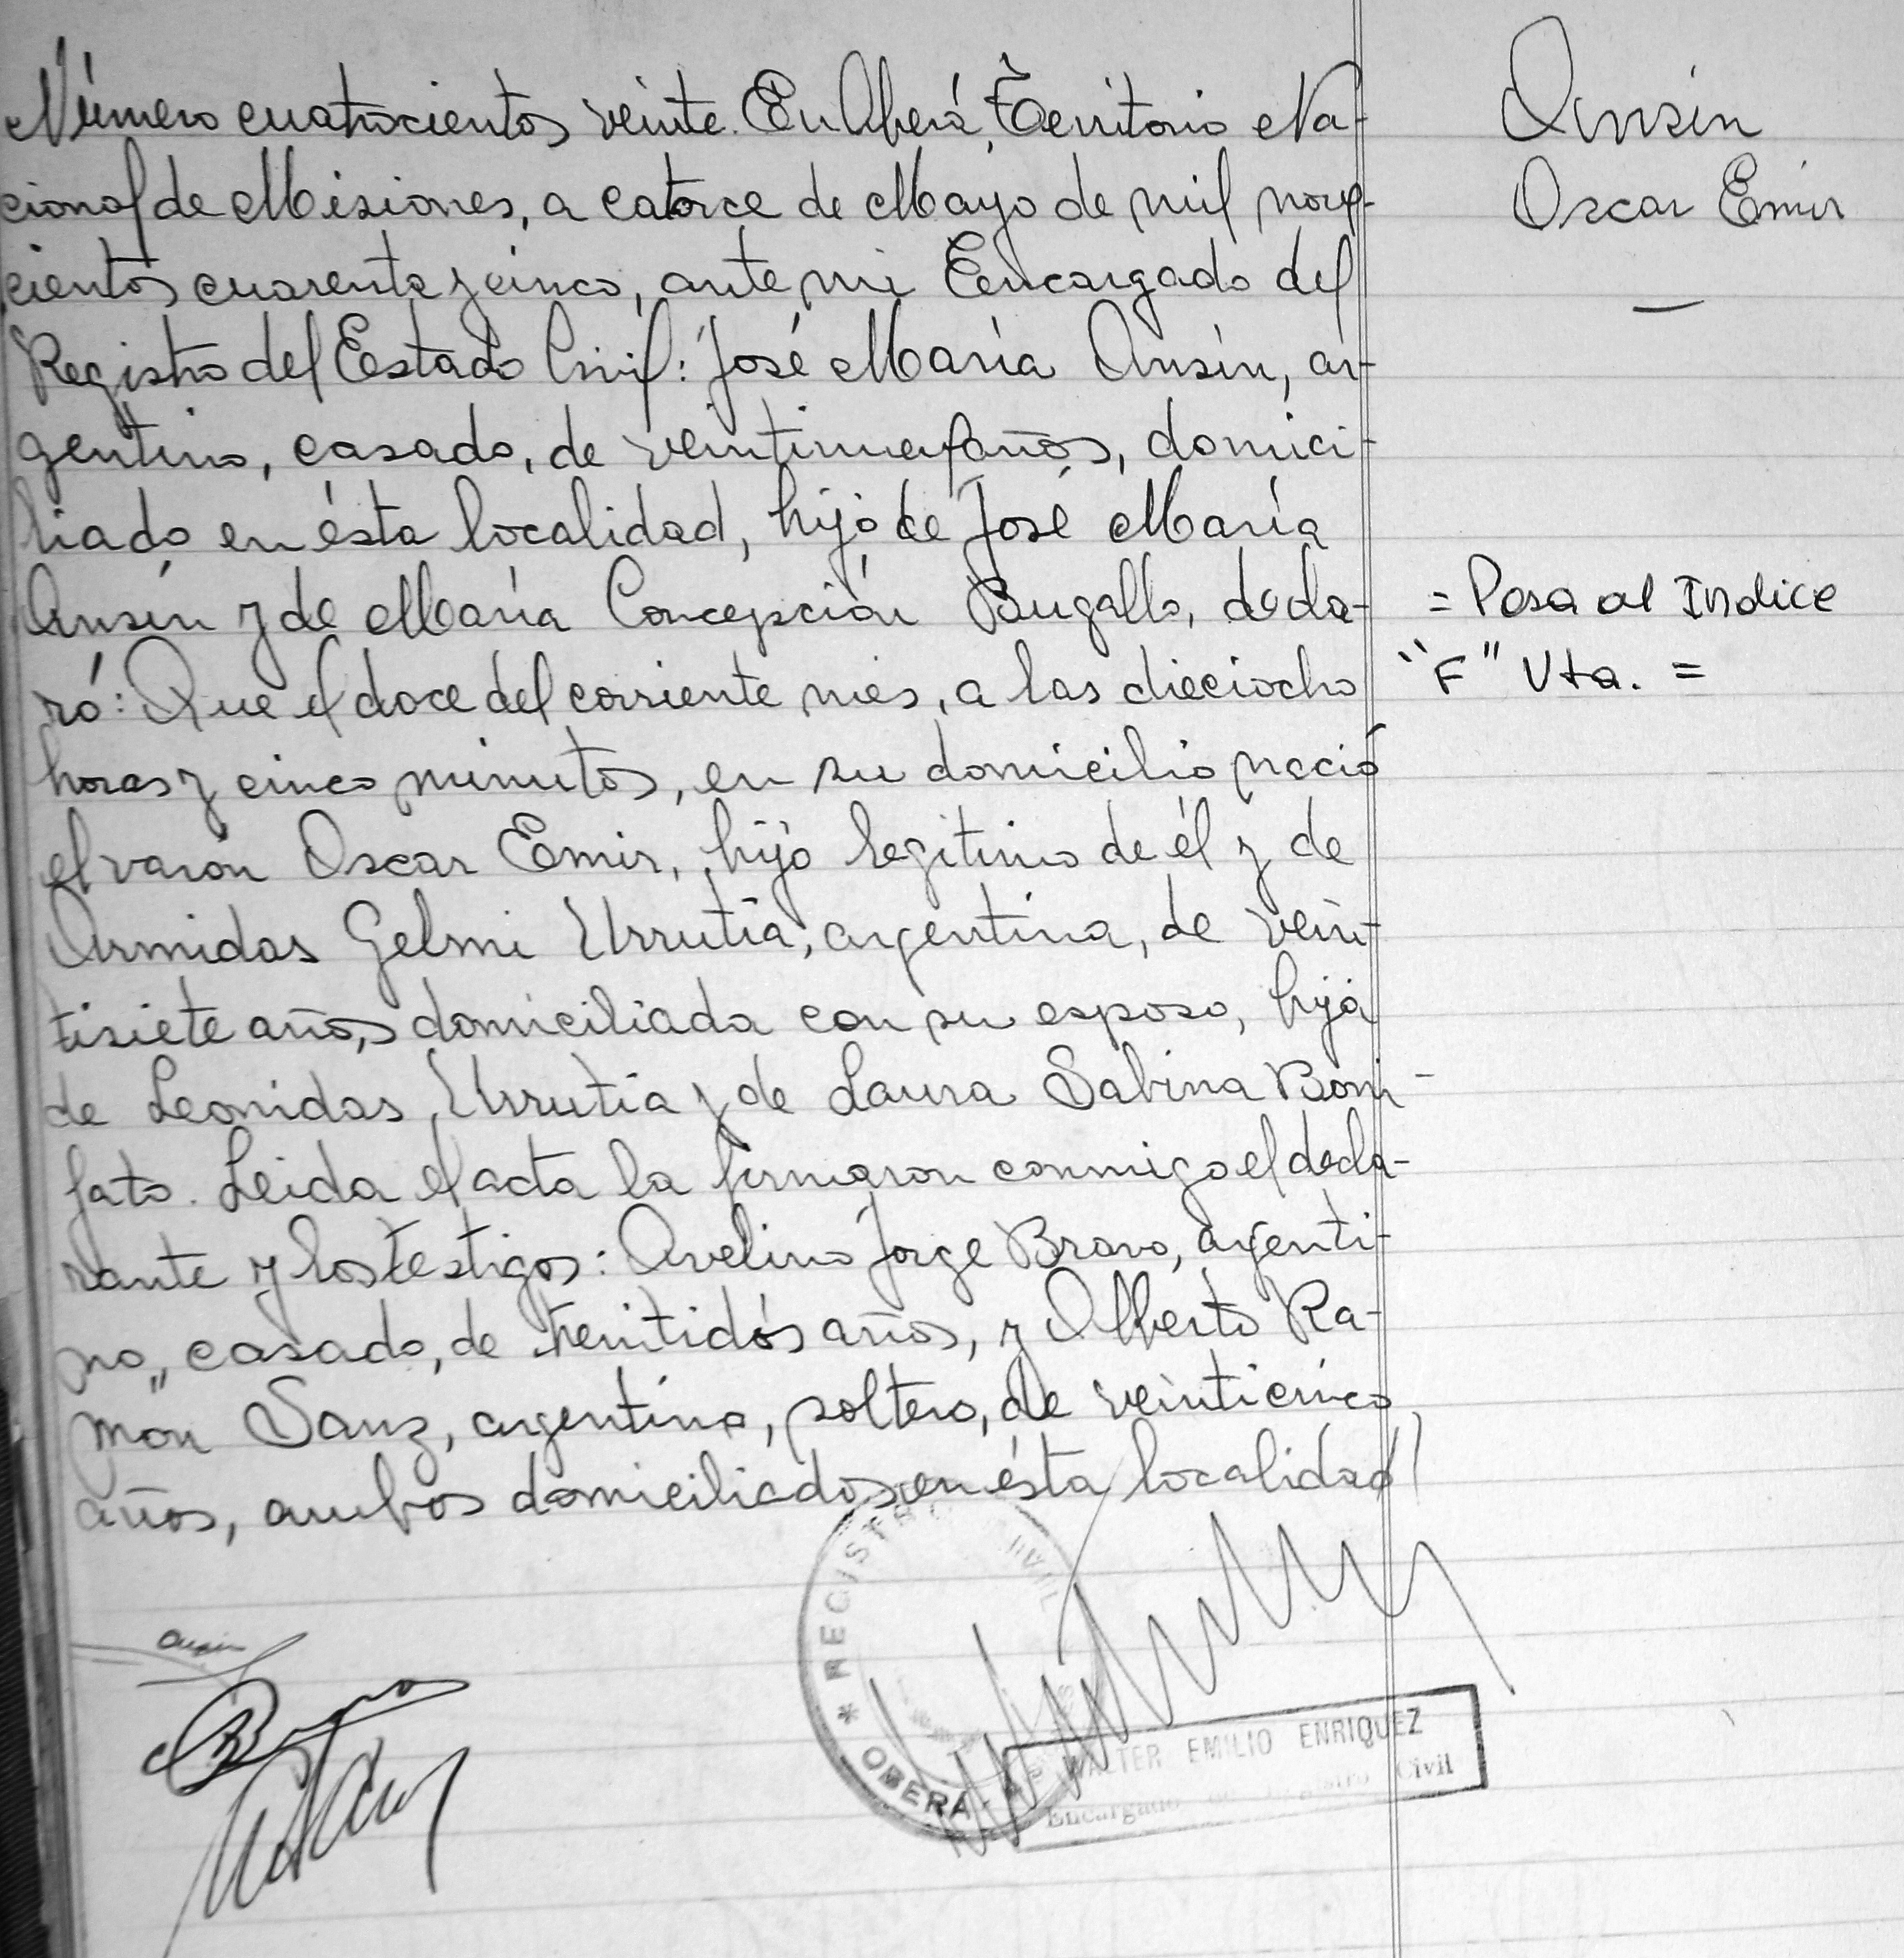 Número cuatrocientos veinte. En Oberá, Territorio Na-
cional de Misiones, a catorce de Mayo de mil nove-
cientos cuarenta y cinco, ante mi Encargado del
Registro del Estado Civil: José María Ansin, ar-
gentino, casado, de veintinueve años, domici-
liado en ésta localidad, hijo de José María
Ansin y de María Concepción Bugallo, decla-
ró: Que el doce del corriente mes, a las dieciocho
horas y cinco minutos, en su domicilio nació
el varón Oscar Emir, hijo legitimo de él y de
Armidas Gelmi Urrutia, argentina, de vein-
tisiete años, domiciliada con su esposo, hija
de Leonidas Urrutia y de Laura Sabina Boni-
fato. Leida el acta la firmaron conmigo el decla-
rante y los testigos: Avelino Jorge Bravo, argenti-
no, casado, de treintidós años, y Alberto Ra-
mon Sanz, argentino, soltero, de veinticinco
años, ambos domiciliados en ésta localidad
Ansin
Oscar Emir
= Pasa al Indice
"F" Vta. =
Ansin
Bravo
REGISTR CIVIL
* OBERA
WALTER EMILIO ENRIQUEZ
Encargado Registro Civil